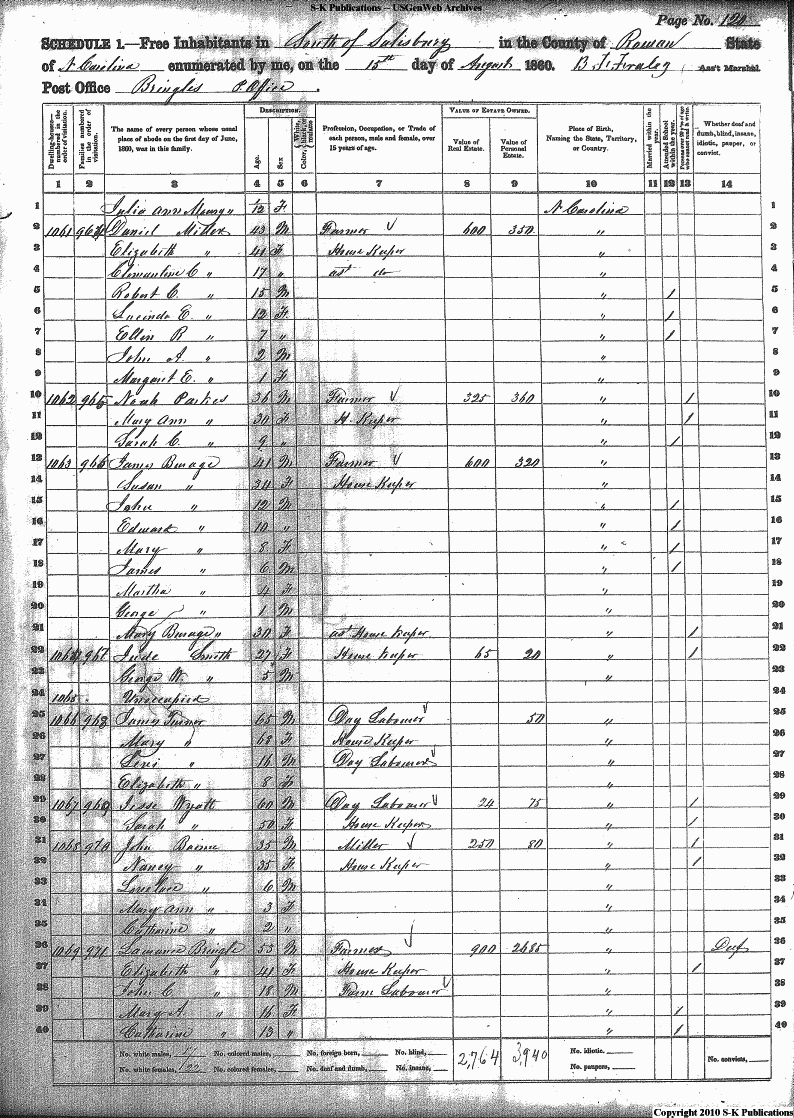 S-K Publications – USGenWeb Archives
Page No. 120
SCHEDULE 1.—Free Inhabitants in South of Salisbury in the County of Rowan State
of N Carolina enumerated by me, on the 15th day of August 1860. B. F. Fraley Ass't Marshal.
Post Office Bringles P. Office.
Dwelling-houses—numbered in the order of visitation.
Families numbered in the order of visitation.
The name of every person whose usual place of abode on the first day of June, 1860, was in this family.
DESCRIPTION.
Age.
Sex.
Color, White, black, or mulatto
Profession, Occupation, or Trade of each person, male and female, over 15 years of age.
VALUE OF ESTATE OWNED.
Value of Real Estate.
Value of Personal Estate.
Place of Birth, Naming the State, Territory, or Country.
Married within the year.
Attended School within the year.
Whether deaf and dumb, blind, insane, idiotic, pauper, or convict.
1 2 3 4 5 6 7 8 9 10 11 12 13 14
1 Julia Ann " 1/12 F N Carolina 1
2 1061 964 Daniel Miller 43 M Farmer √ 600 350 " 2
3 Elizabeth " 41 F House Keeper " 3
4 Clementine C " 17 " ast do " 4
5 Robert C. " 15 M " / 5
6 Lucinda E. " 12 F " / 6
7 Ellin R " 7 " " / 7
8 John A. " 2 M " 8
9 Margaret E. " 1 F " 9
10 1062 965 Noah Parkes 36 M Farmer √ 325 360 " / 10
11 Mary Ann " 30 F H Keeper " / 11
12 Sarah C. " 9 " " / 12
13 1063 966 James Burage 41 M Farmer √ 600 320 " 13
14 Susan " 34 F House Keeper " 14
15 John " 12 M " / 15
16 Edward " 10 " " / 16
17 Mary " 8 F " / 17
18 James " 6 M " / 18
19 Martha " 4 F " 19
20 George " 1 M " 20
21 Mary Burage " 30 F ast House Keeper " / 21
22 1064 967 Jude Smith 27 F House Keeper 65 20 " / 22
23 George W. " 5 M " 23
24 1065 Unoccupied 24
25 1066 968 James Turner 65 M Day Labourer √ 50 " 25
26 Mary " 68 F House Keeper " 26
27 Levi " 16 M Day Labourer √ " 27
28 Elizabeth " 8 F " 28
29 1067 969 Jesse Wyatt 60 M Day Labourer √ 24 75 " / 29
30 Sarah " 50 F House Keeper " / 30
31 1068 970 John 35 M Miller √ 250 80 " / 31
32 Nancy " 35 F House Keeper " / 32
33 Lovelace " 6 M " 33
34 Mary Ann " 3 F " 34
35 Catharine " 2 " " 35
36 1069 971 Bringle 55 M Farmer √ 900 2685 " Deef 36
37 Elizabeth " 41 F House Keeper " / 37
38 John C. " 18 M Farm Labourer √ " 38
39 Mary A. " 16 F " / 39
40 Catharine " 13 " " / 40
No. white males, 17 No. colored males, No. foreign born, No. blind, 2,764 3,940 No. idiotic, No. convicts,
No. white females, No. colored females, No. deaf and dumb, No. insane, No. paupers,
Copyright 2010 S-K Publications